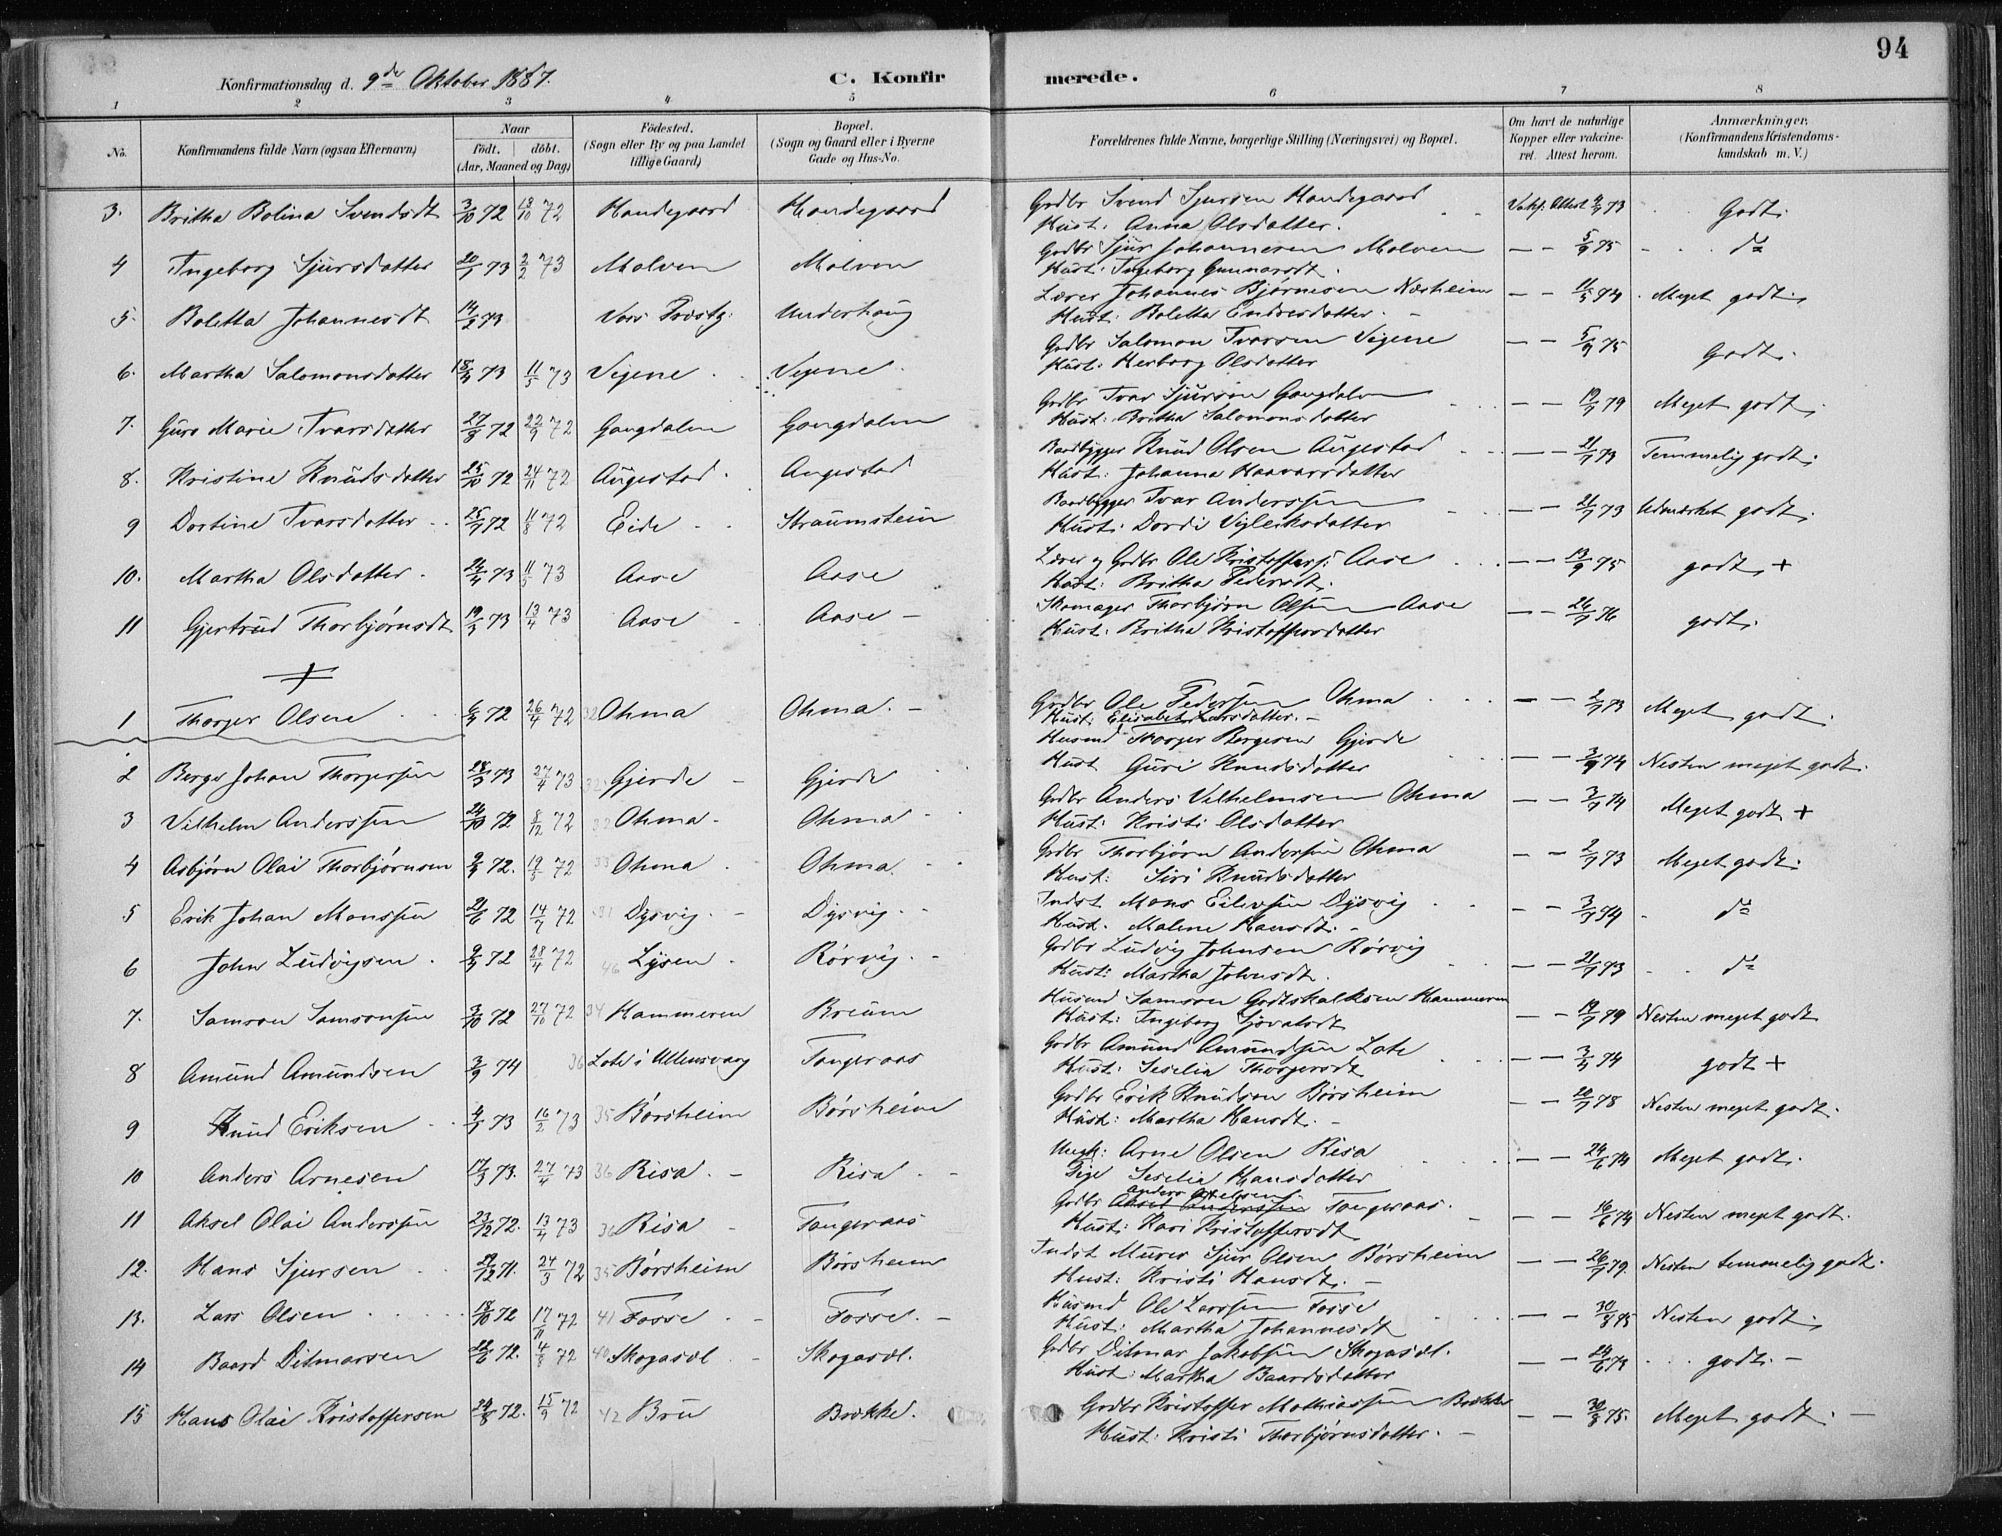 94
Konfirmationsdag d. 9de Oktober 1887.
C. Konfirmerede.
1 2 3 4 5 6 7 8
No. | Konfirmandens fulde Navn (ogsaa Efternavn) | Naar født. døbt. (Aar, Maaned og Dag) | Fødested. (Sogn eller By og paa Landet tillige Gaard) | Bopæl. (Sogn og Gaard eller i Byerne Gade og Hus-No. | Forældrenes fulde Navne, borgerlige Stilling (Næringsvei) og Bopæl. | Om havt de naturlige Kopper eller vakcineret. Attest herom. | Anmærkninger. (Konfirmandens Kristendomskundskab m. V.)
3. Britha Bolina Svendsdt 3/10 72 13/10 72 Handegaard Handegaard Grdbr Svend Sjursen Handegaard Hust. Anna Olsdatter. Vakc. Attest 73 Godt.
4 Ingeborg Sjursdatter 20/1 73 2/2 73 Malven Malven Grdbr Sjur Johannesen Malven Hust. Ingeborg Gunnarsdt. — — 5/9 75 do
5. Boletta Johannesdt 14/2 73 Vors Prestg. Underhaug Lærer Johannes Bjørnesen Næsheim Hust: Boletta Endresdatter. — — 11/5 74 Meget godt.
6. Martha Salomonsdatter 18/4 73 11/5 73 Vejene Vejene Grdbr Salomon Ivarsen Vejene Hust: Herborg Olsdatter — — 5/9 75 Godt.
7. Guro Marie Ivarsdatter 27/8 72 22/9 72 Gangdalen Gangdalen Grdbr Ivar Sjursen Gangdalen Hust: Britha Salomonsdatter — — 19/7 79 Meget godt.
8. Kristine Knudsdatter 25/10 72 24/11 72 Augestad Augestad Baadbygger Knud Olsen Augestad Hust: Johanna Haavarsdatter — — 21/7 73 Temmelig godt.
9 Dortine Ivarsdatter 25/7 72 11/8 72 Eide Straumstein Baadbygger Ivar Anderssen Hust: Dordi Vigleiksdatter — — 21/7 73 Udmærket godt.
10. Martha Olsdatter. 24/4 73 11/5 73 Aase Aase Lærer og Grdbr Ole Kristoffers: Aase Hust: Britha Pedersdt. — — 13/9 75 godt +
11 Gjertrud Thorbjørnsdt 19/3 73 13/4 73 Aase Aase — Skomager Thorbjørn Olsen Aase Hust: Britha Kristoffersdatter — — 26/7 76 godt.
1 Thorger Olsen 6/4 72 26/4 72 32 Ohma Ohma. — Grdbr Ole Pedersen Ohma Hust: Elisabet Larsdatter. — — — 2/7 73 Meget godt.
2 Berge Johan Thorgersen 28/3 73 27/4 73 32 Gjerde — Gjerde Husmd Thorger Bergesen Gjerde Hust Guri Knudsdatter — — 3/9 74 Nesten meget godt.
3 Vilhelm Anderssen 24/10 72 8/12 72 32 Ohma. Ohma Grdbr Anders Vilhelmsen Ohma Hust: Kristi Olsdatter — — 3/7 74 Meget godt +
4 Asbjørn Olai Thorbjørnsen 9/4 72. 19/5 72 33 Ohma Ohma. Grdbr Thorbjørn Andersen Ohma Hust: Siri Knudsdatter — — 2/7 73 Meget godt.
5 Erik Johan Monssen 21/6 72 14/7 72 31 Dysvig. — Dysvig. Indst Mons Eilevsen Dysvig Hust. Malene Hansdt. — — 3/7 74 do
6 John Ludvigsen. 9/4 72 28/4 72 46 Lysen. Rørvig. Grdbr Ludvig Johnsen Rørvig Hust: Martha Johnsdt. — — 21/7 73 do
7. Samson Samsonsen 3/10 72 27/10 72 34 Hammeren Breum Husmd Samson Godtskalksen Hammeren Hust: Ingeborg Sjovatsdt — — 19/7 79 Nesten meget godt
8 Amund Amundsen 3/9 74 36 Lote i Ullensvang Tangeraas Grdbr Amund Amundsen Lote Hust: Seselia Thorgersdt — — 74 godt +
9 Knud Eriksen 73 16/2 73 35 Børsheim Børsheim Grdbr Erik Knudsen Børsheim Hust: Martha Hansdt. — — — 20/7 78 Nesten meget godt.
10 Anders Arnesen 17/3 73. 27/4 73 36 Risa. — Risa Ungk: Arne Olsen Risa Pige Seselia Hansdatter — — 24/6 74 Meget godt.
11 Aksel Olai Anderssen 23/12 72. 13/4 73 36 Risa Tangeraas Grdbr Anders Akselsen Tangeraas. Hust: Kari Kristoffersdt — — 16/6 74 Nesten meget godt.
12. Hans Sjursen 71. 24/3 72 35 Børsheim Børsheim Indst Murer Sjur Olsen Børsheim Hust: Kristi Hansdt. — — — 26/7 79. Nesten temmelig godt.
13. Lars Olsen 18/10 72 17/11 72 41 Fosse Fosse. — Husmd Ole Larssen Fosse Hust: Martha Johannesdt — — 30/8 75 Nesten godt.
14 Baard Ditmarsen 22/6 72. 4/8 72 40 Skogasæl Skogasæl. Grdbr Ditmar Jakobsen Skogasæl. Hust: Martha Baardsdatter — — 24/6 74 godt. —
15 Hans Olai Kristoffersen 24/8 72. 15/9 72 42 Bru Brekke. Grdbr Kristoffer Mathiassen Brekke Hust: Kristi Thorbjørnsdatter. — — — 30/8 75. Meget godt. —